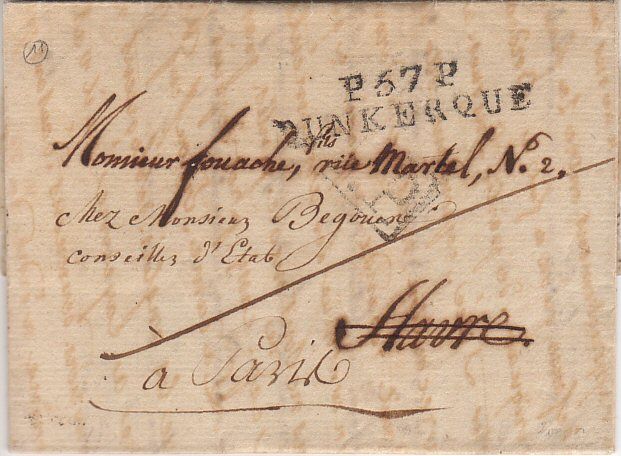 11
P 57 P
DUNKERQUE
fils
Monsieur fouache, rüe Martel, N.° 2.
chez Monsieur Begouen
conseiller d'Etat
Havre.
à Paris